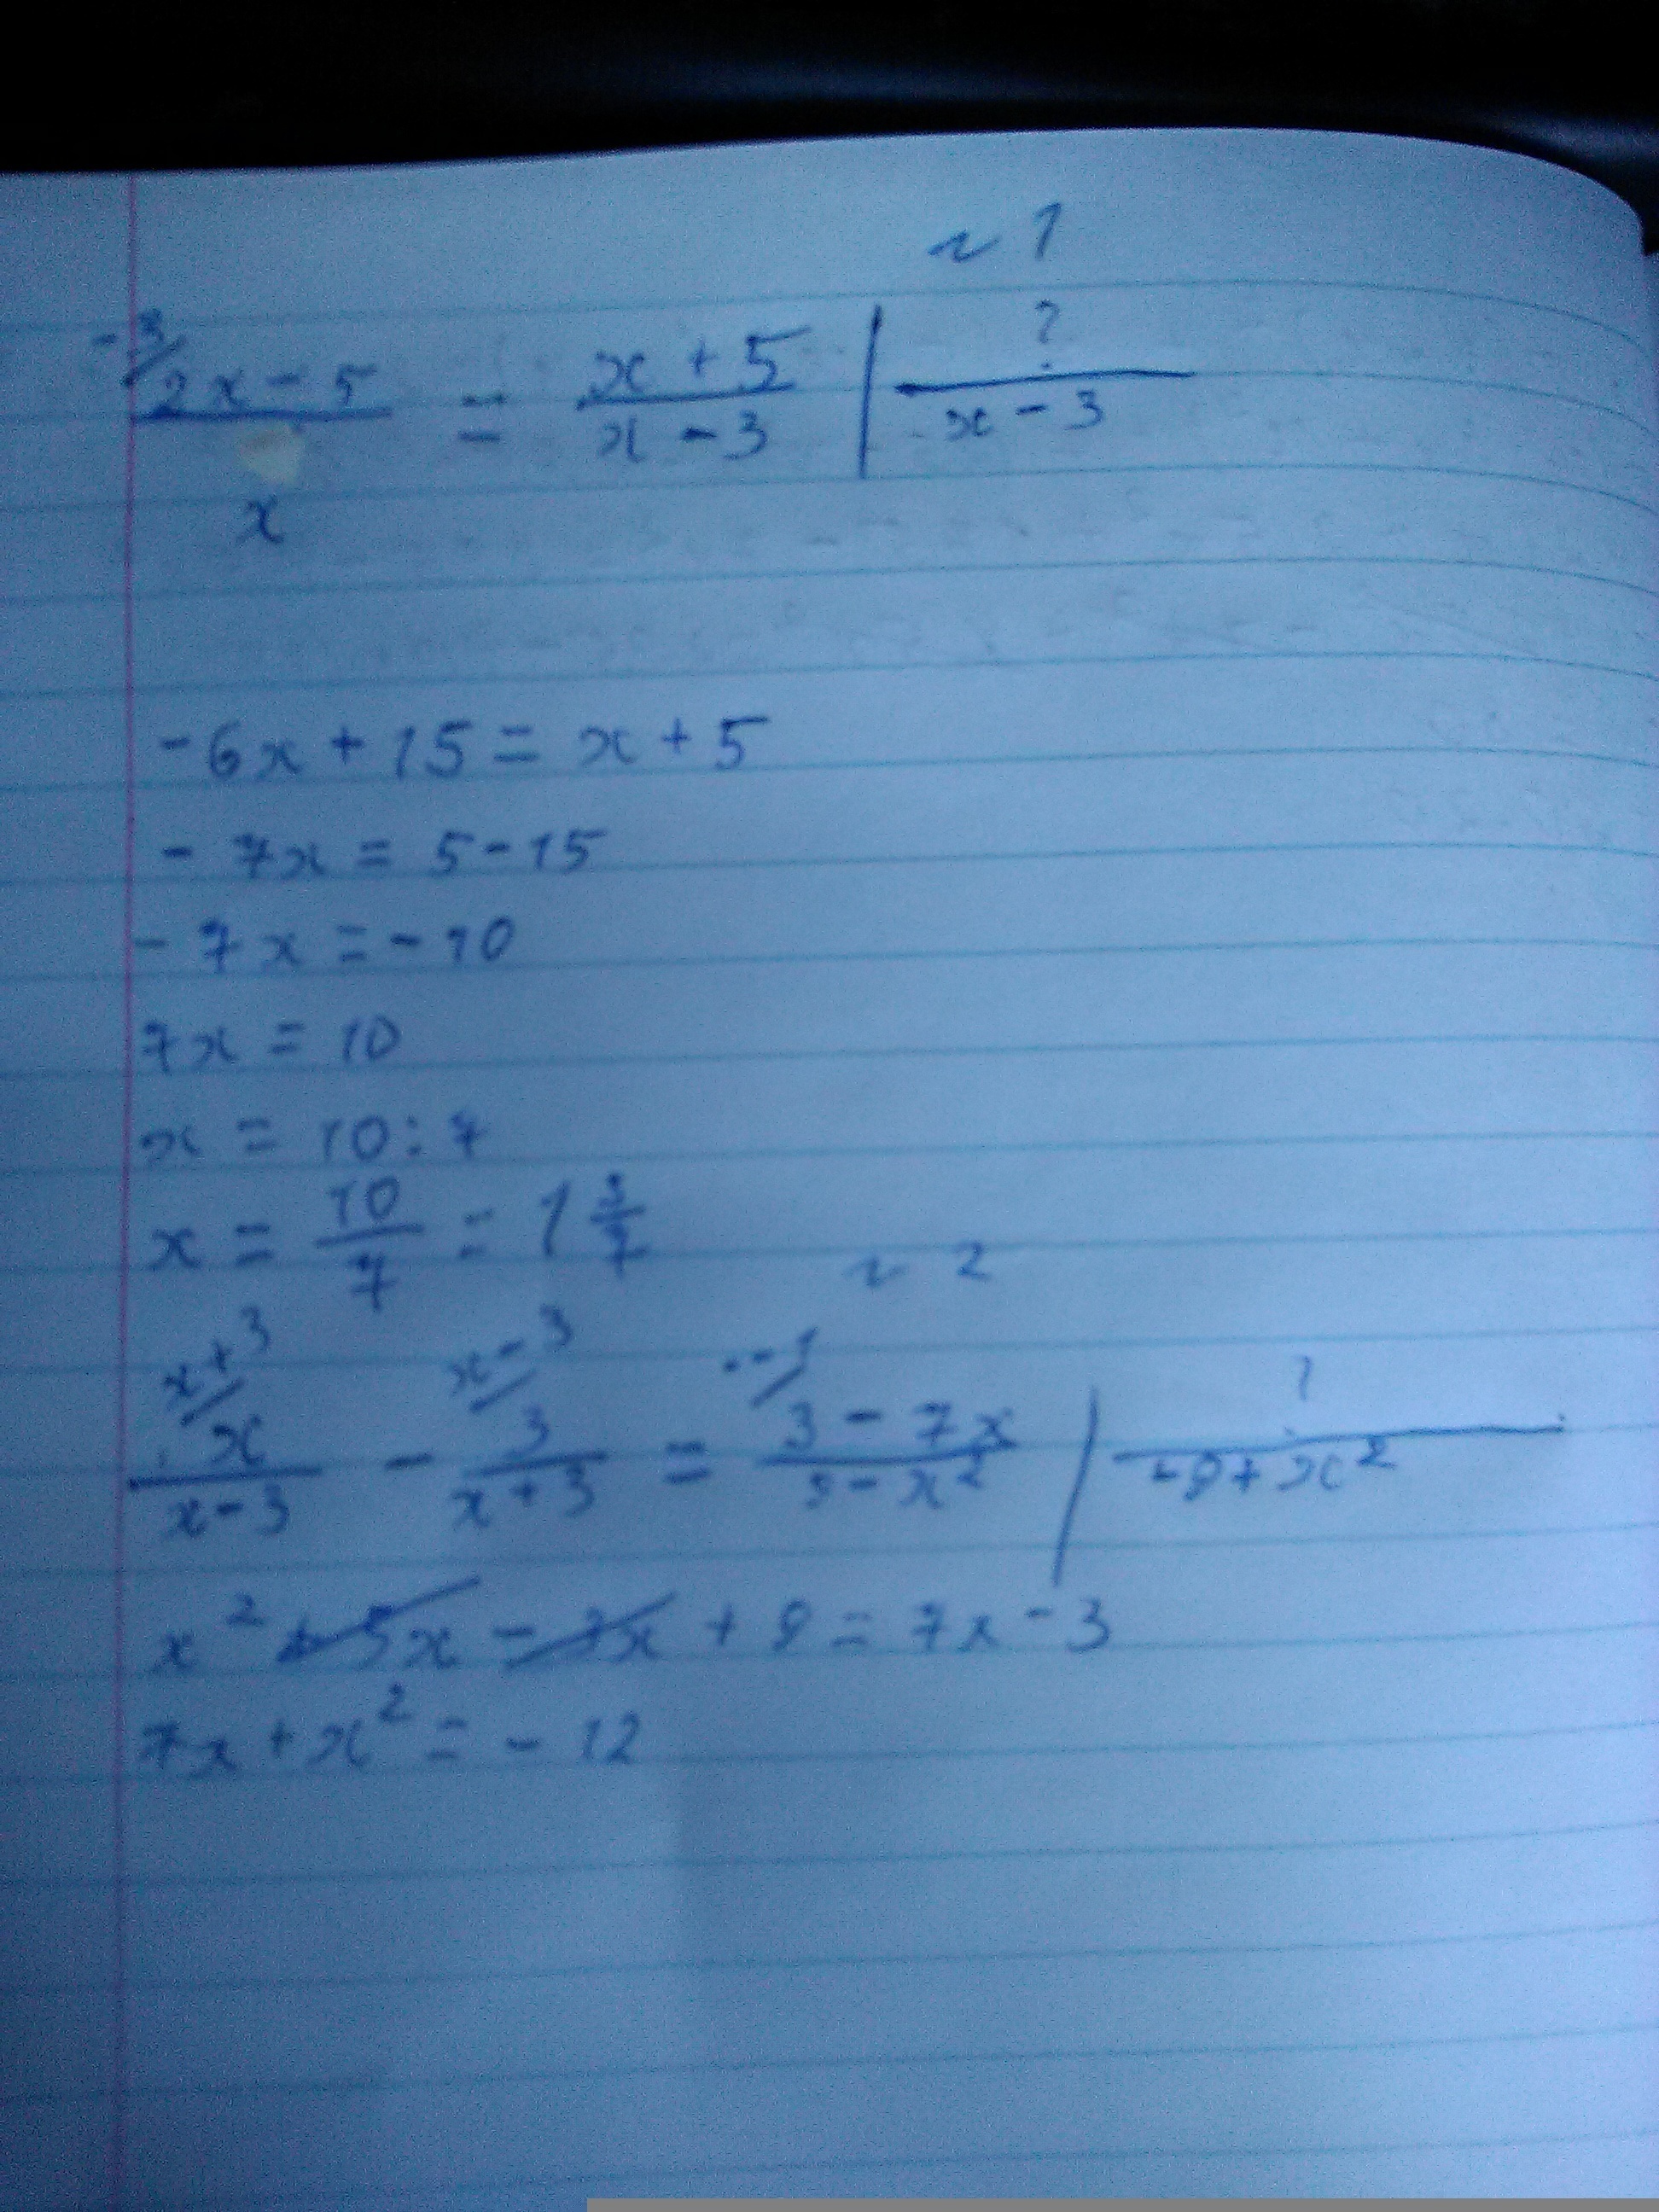 ~ 1
-3/ (2x - 5)/x = (x + 5)/(x - 3) | ?/(x - 3)
- 6x + 15 = x + 5
- 7x = 5 - 15
- 7x = - 10
7x = 10
x = 10 : 7
x = 10/7 = 1 3/7
~ 2
x+3/ x/(x - 3) - x-3/ 3/(x + 3) = -1/ (3 - 7x)/(9 - x²) | ?/(-9 + x²)
x² + 3x - 3x + 9 = 7x - 3
7x + x² = - 12